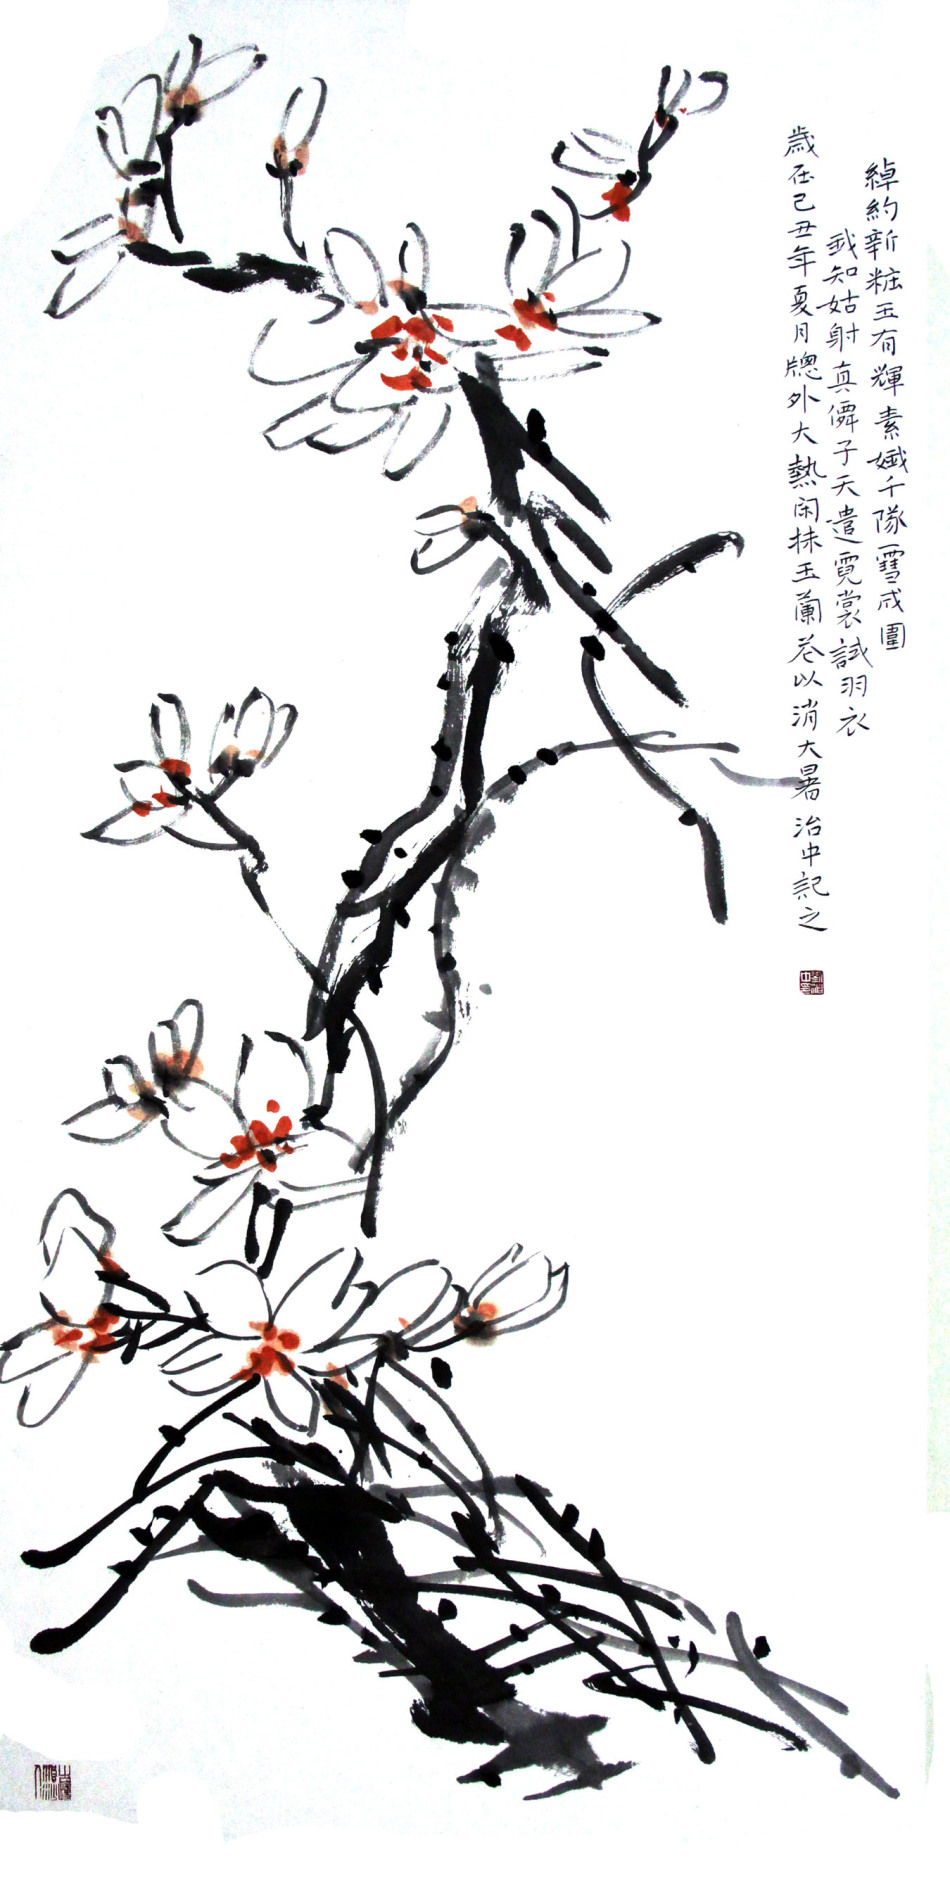 綽約新粧玉有輝素娥千隊雪成圍
我知姑射真僊子天遣霓裳試羽衣
歲在己丑年夏月牕外大熱闲抹玉蘭花以消大暑治中記之